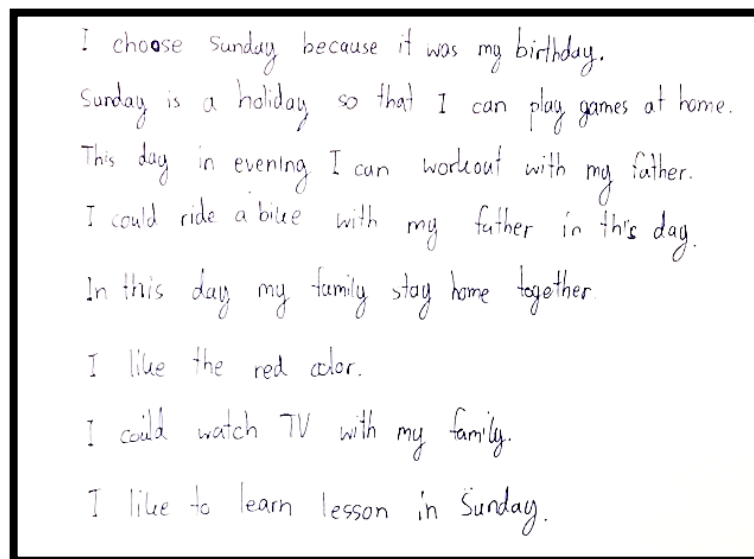 I choose Sunday because it was my birthday.
Sunday is a holiday so that I can play games at home.
This day in evening I can workout with my father.
I could ride a bike with my father in this day.
In this day my family stay home together.
I like the red color.
I could watch TV with my family.
I like to learn lesson in Sunday.